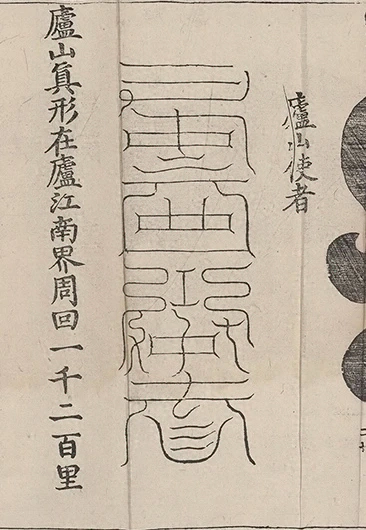 廬山使者
廬山真形在廬江南界周回一千二百里